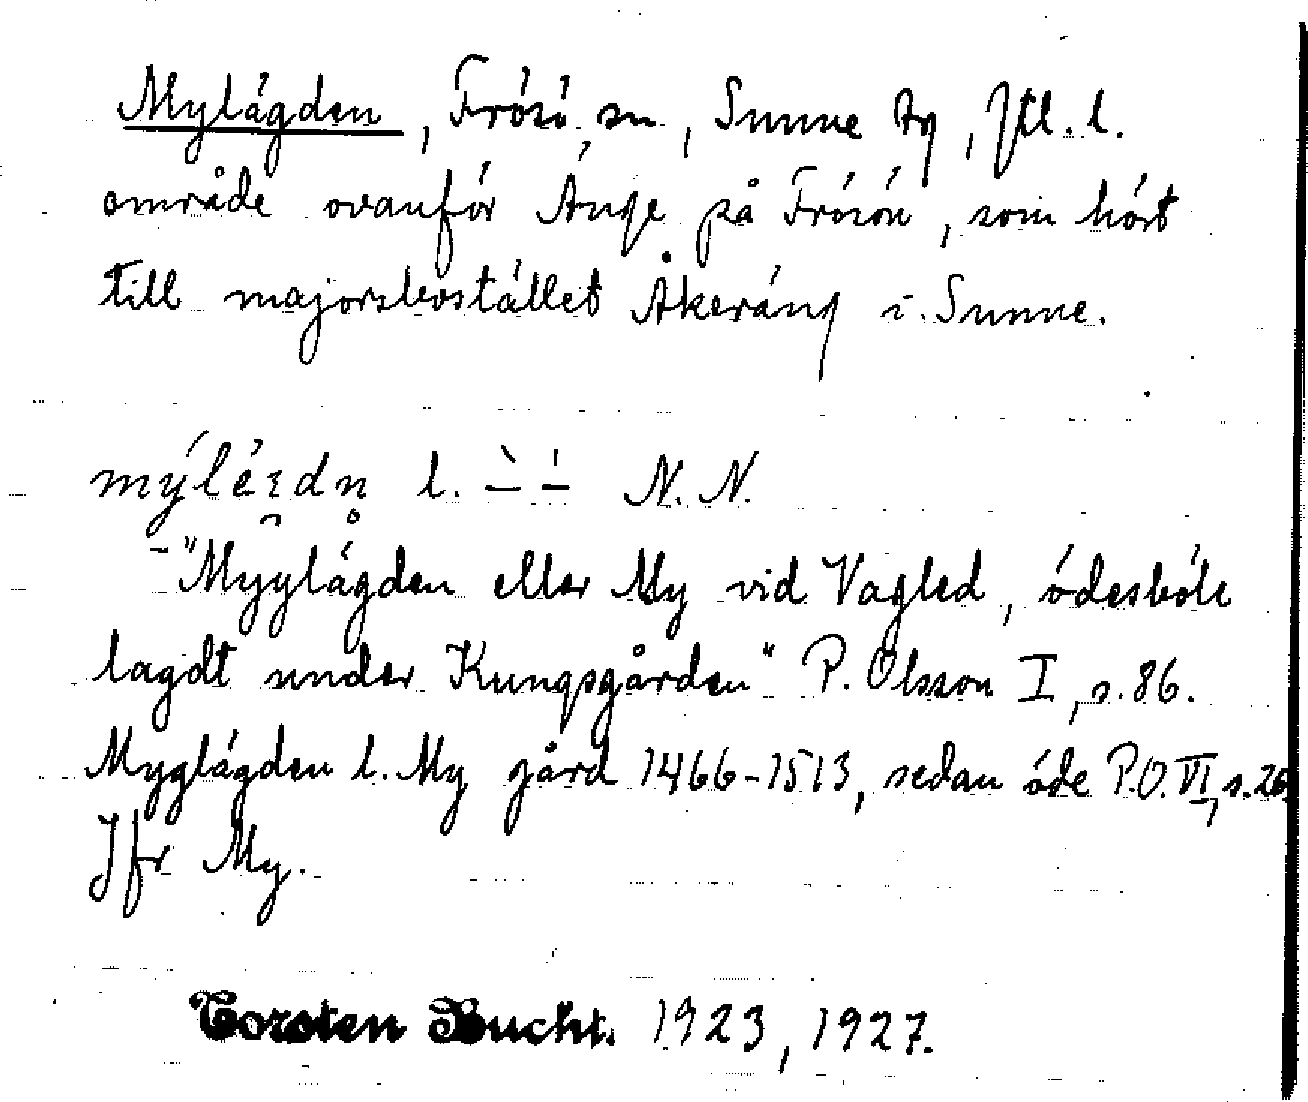 Mylägden, Frösö sn, Sunne tg, Jtl. l.
område ovanför Änge på Frösön, som hört
till majorsbostället Åkeräng i Sunne.
l. N. N.
- "Myylägden eller My vid Vagled, ödesböle
lagdt under Kungsgården" P. Olsson I, s. 86.
Myglägden l. My gård 1466-1513, sedan öde P.O. VI, s. 26.
Jfr My.
Torsten Bucht. 1923, 1927.